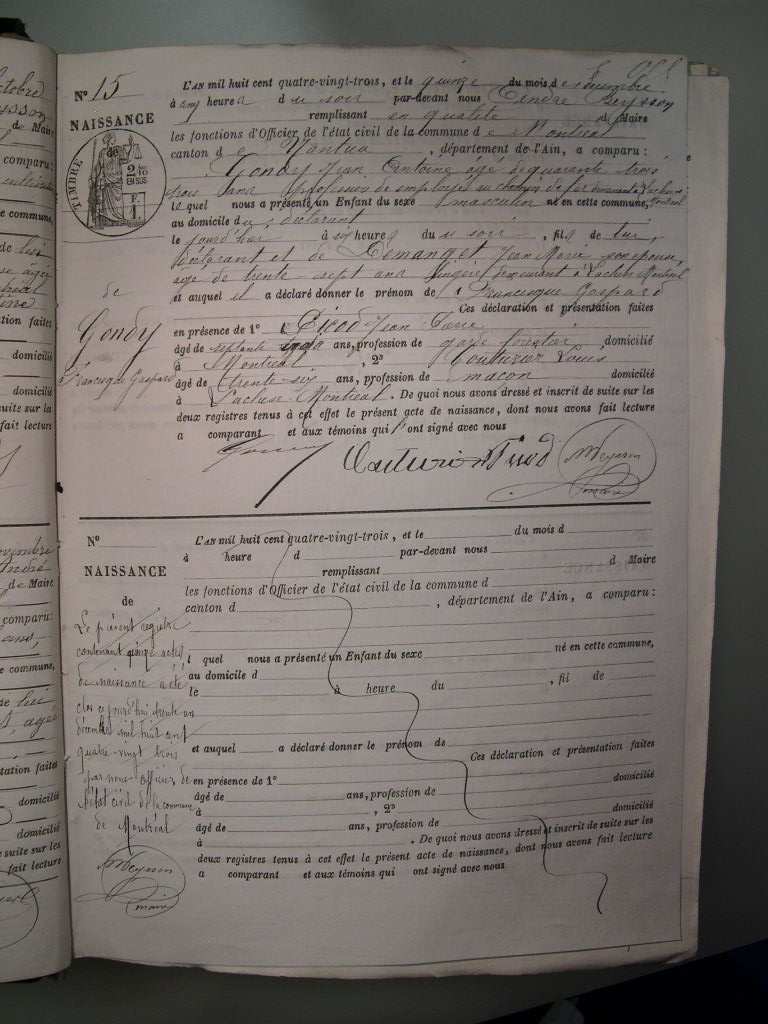 N° 15
NAISSANCE
TIMBRE
de
2/10
EN SUS
F.
1
de
Gondy
Francisque Gaspard
L'AN mil huit cent quatre-vingt-trois, et le quinze du mois de
à heures du soir par-devant nous
remplissant en qualité de Maire
les fonctions d'Officier de l'état civil de la commune de Montréal
canton de Nantua, département de l'Ain, a comparu:
Gondy Jean Antoine âgé de quarante trois
ans profession de employé au chemin de fer
lequel nous a présenté un Enfant du sexe masculin né en cette commune,
au domicile du déclarant
le jourd'hui à six heures du soir, fils de lui,
déclarant et de Jean Marie son épouse,
âgé de trente sept ans
et auquel il a déclaré donner le prénom de Francisque Gaspard
Ces déclaration et présentation faites
en présence de 1° Picod Jean
âgé de septante ans, profession de garde forestier, domicilié
à Montréal, 2° Couturier Louis
âgé de trente-six ans, profession de maçon domicilié
à Montréal. De quoi nous avons dressé et inscrit de suite sur les
deux registres tenus à cet effet le présent acte de naissance, dont nous avons fait lecture
a comparant et aux témoins qui ont signé avec nous
Couturier Picod
maire
N°
NAISSANCE
de
Le présent registre
contenant quinze actes
de naissance a été
clos ce jourd'hui trente un
décembre mil huit cent
quatre-vingt trois
par nous officier de
l'état civil de la commune
de Montréal
maire
L'AN mil huit cent quatre-vingt-trois, et le du mois d
à heure d par-devant nous
remplissant d Maire
les fonctions d'Officier de l'état civil de la commune d
canton d, département de l'Ain, a comparu:
l quel nous a présenté un Enfant du sexe né en cette commune,
au domicile d
le à heure du, fil de
et auquel a déclaré donner le prénom de
Ces déclaration et présentation faites
en présence de 1° domicilié
âgé de ans, profession de
à, 2° domicilié
âgé de ans, profession de
à. De quoi nous avons dressé et inscrit de suite sur les
deux registres tenus à cet effet le présent acte de naissance, dont nous avons fait lecture
a comparant et aux témoins qui ont signé avec nous